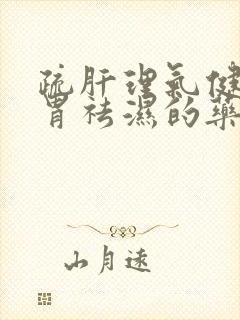 疏肝理氣健
胃祛濕的藥
山月遠